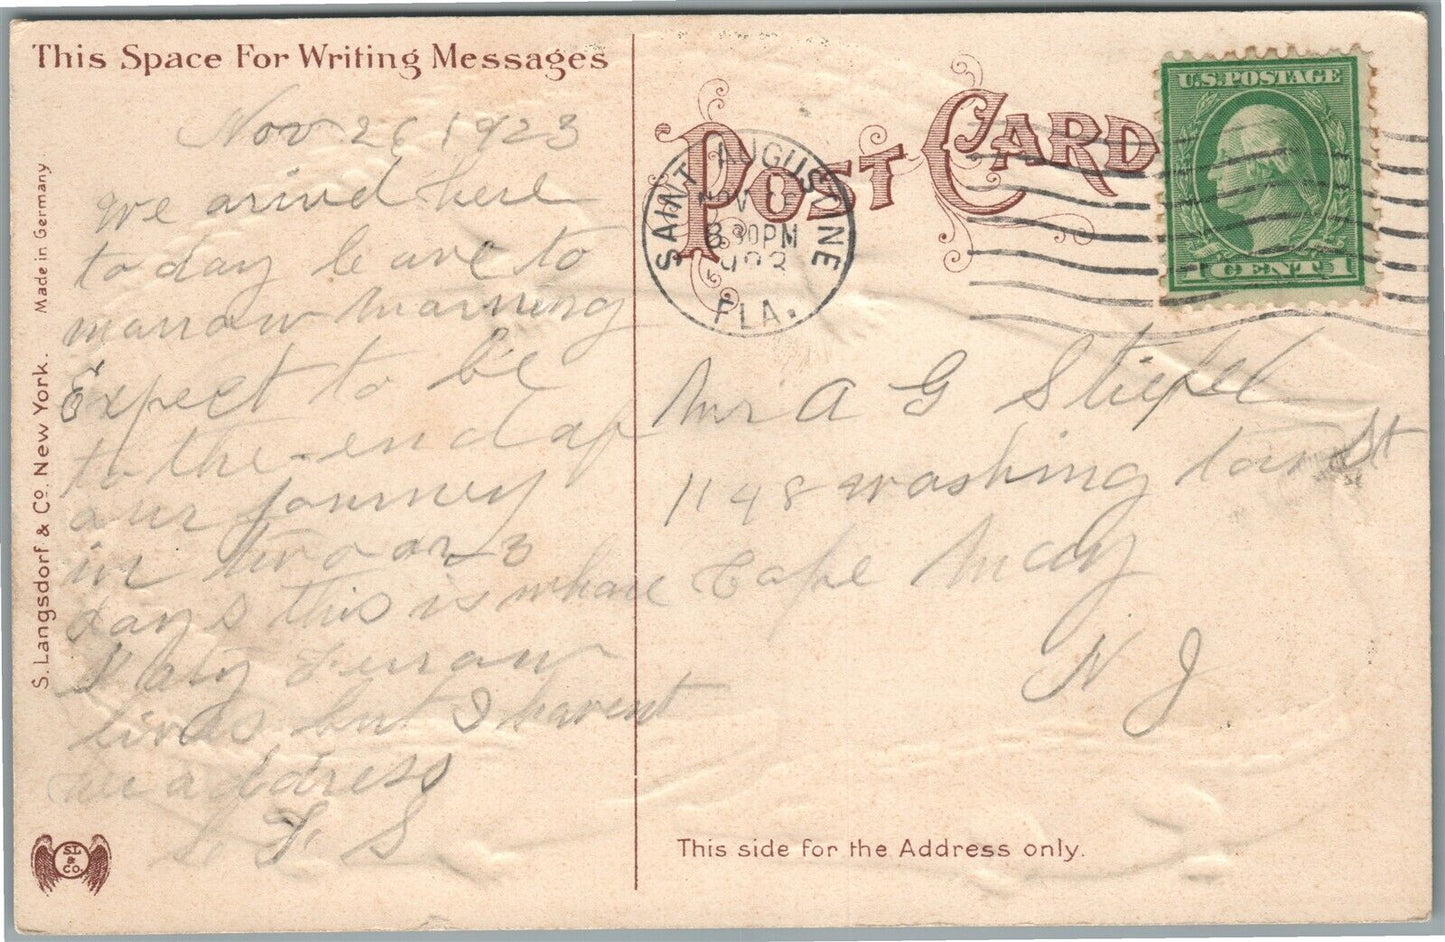 This Space For Writing Messages
Nov 26 1923
We arived here
today leave to
morrow morning
Expect to be
to the end of
our journey
in two or 3
days this is whare
Katy Ferrow
lives but I havent
address
F S
S. Langsdorf & Co. New York. Made in Germany.
SL & CO
POST CARD
SAINT AUGUSTINE
NOV
8 30PM
FLA.
U.S. POSTAGE
1 CENT 1
Mr A G Stiefel
1148 washing ton St
Cape May
N J
This side for the Address only.